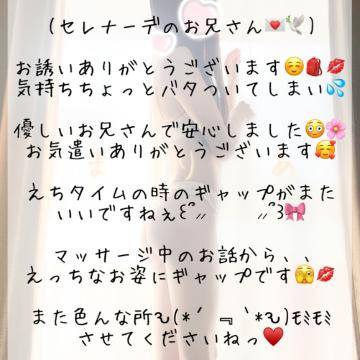 (セレナーデのお兄さん💌🕊️)
お誘いありがとうございます☺️🎒💋
気持ちちょっとバタついてしまい💦
優しいお兄さんで安心しました😳🌸
お気遣いありがとうございます🥰
えちタイムの時のギャップがまた
いいですねぇ꒰ ՞⸝⸝ ⸝⸝՞꒱🎀
マッサージ中のお話から、、
えっちなお姿にギャップです🫣💋
また色んな所ԅ(*´ ﹃ `*ԅ)ﾓﾐﾓﾐ
させてくださいねっ♥️